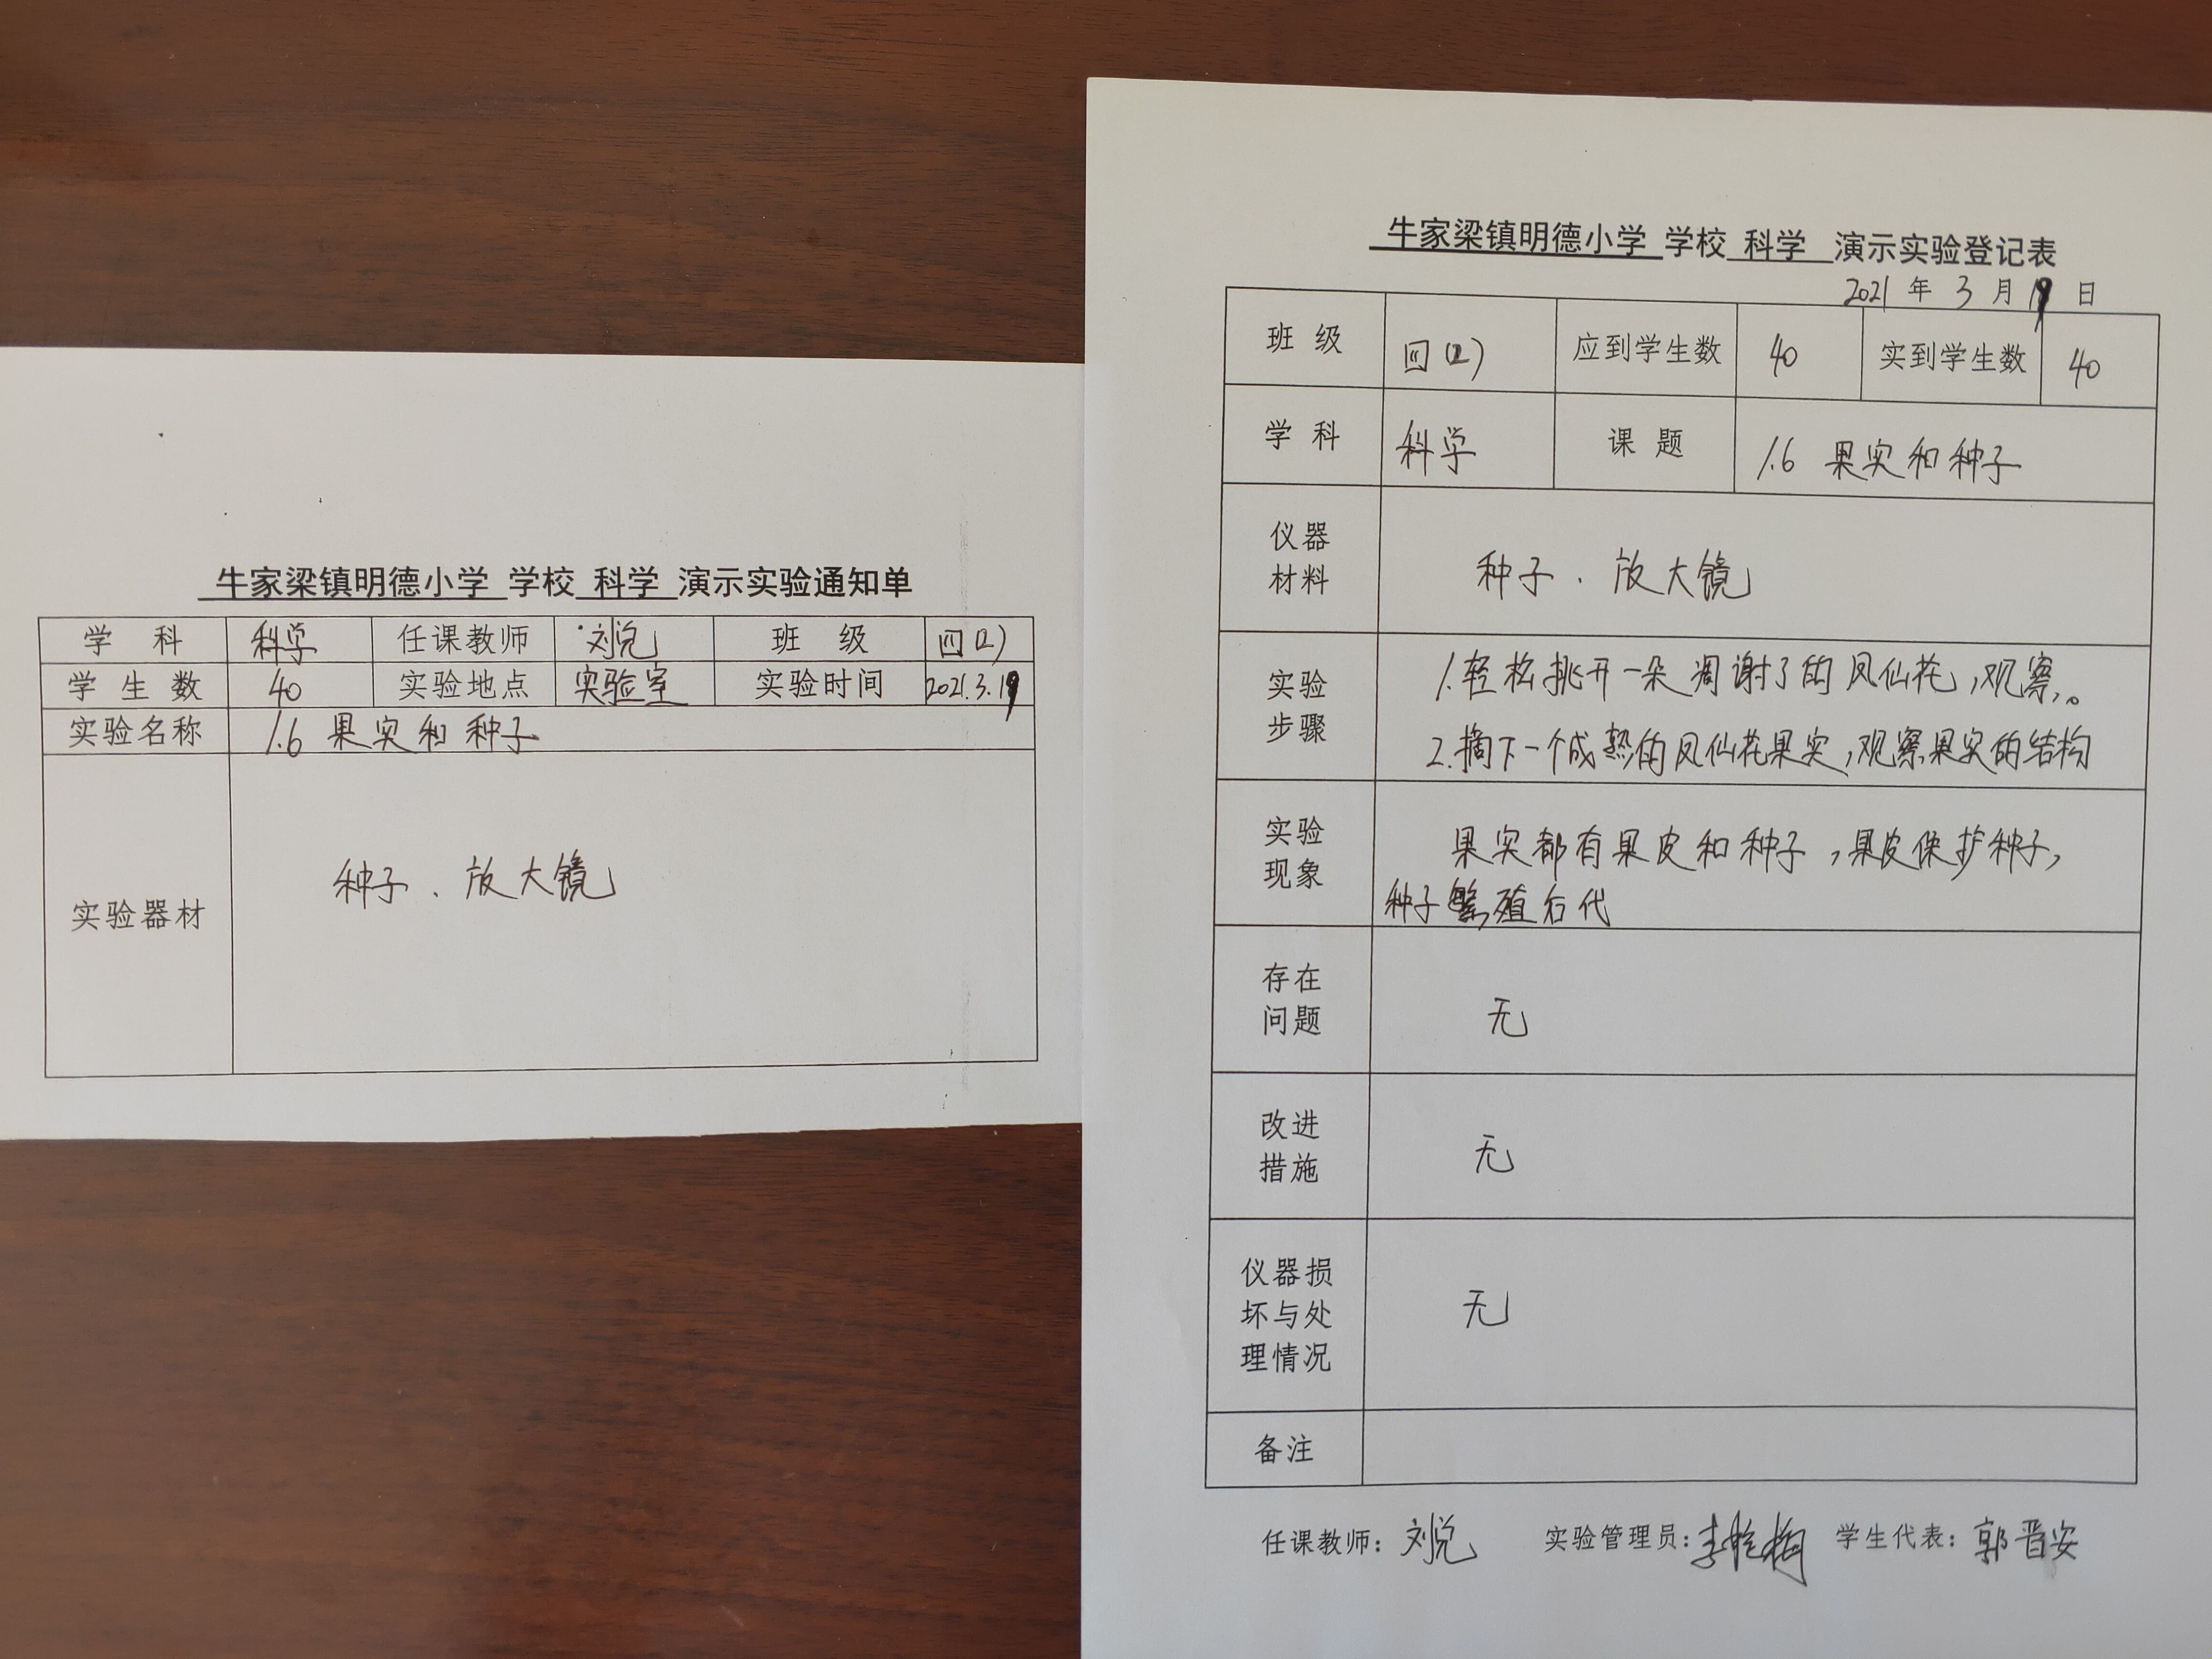 牛家梁镇明德小学 学校 科学 演示实验通知单
学 科 科学 任课教师 刘兑 班 级 四(2)
学 生 数 40 实验地点 实验室 实验时间 2021.3.19
实验名称 1.6 果实和种子
实验器材 种子、放大镜
牛家梁镇明德小学 学校 科学 演示实验登记表
2021 年 3 月 19 日
班 级 四(2) 应到学生数 40 实到学生数 40
学 科 科学 课 题 1.6 果实和种子
仪器
材料
种子、放大镜
实验
步骤
1.轻松挑开一朵凋谢了的凤仙花,观察。
2.摘下一个成熟的凤仙花果实,观察果实的结构
实验
现象
果实都有果皮和种子,果皮保护种子,
种子繁殖后代
存在
问题
无
改进
措施
无
仪器损
坏与处
理情况
无
备注
任课教师: 刘兑 实验管理员: 李 学生代表: 郭晋安